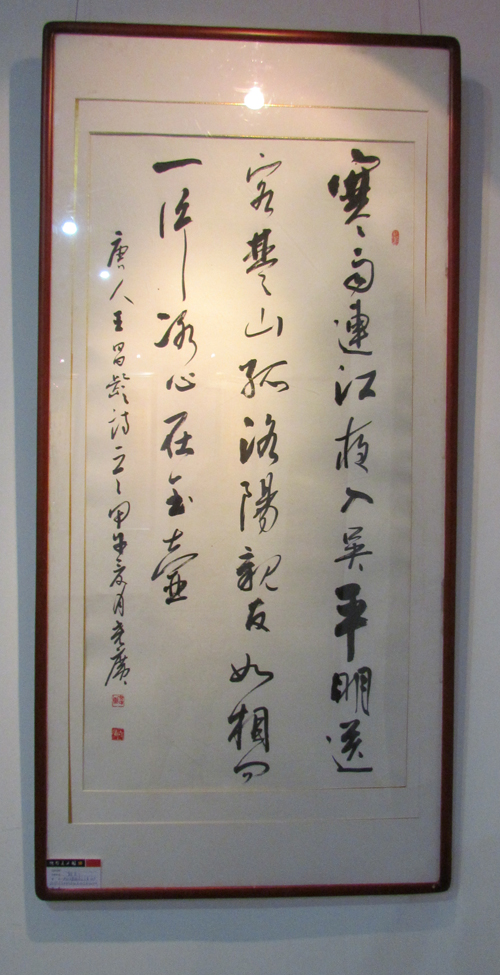 寒雨連江夜入吴平明送
客楚山孤洛陽親友如相问
一片冰心在玉壺
唐人王昌齡詩 甲午夏月 廣